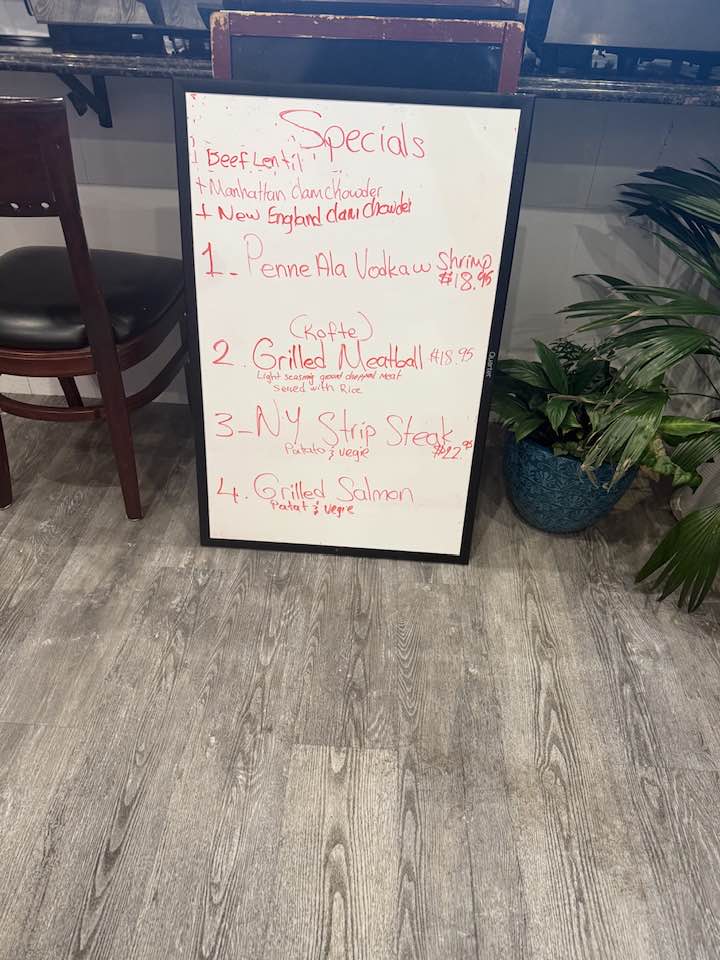 Specials
+ Beef Lentil
+ Manhattan clam chowder
+ New England clam chowder
1- Penne Ala Vodka w Shrimp
$18.95
(Kofte)
2. Grilled Meatball $18.95
Light seasning ground chopped meat
Served with Rice
3- NY Strip Steak
Patato & vegie $22.95
4. Grilled Salmon
Patat & vegie
Quartet